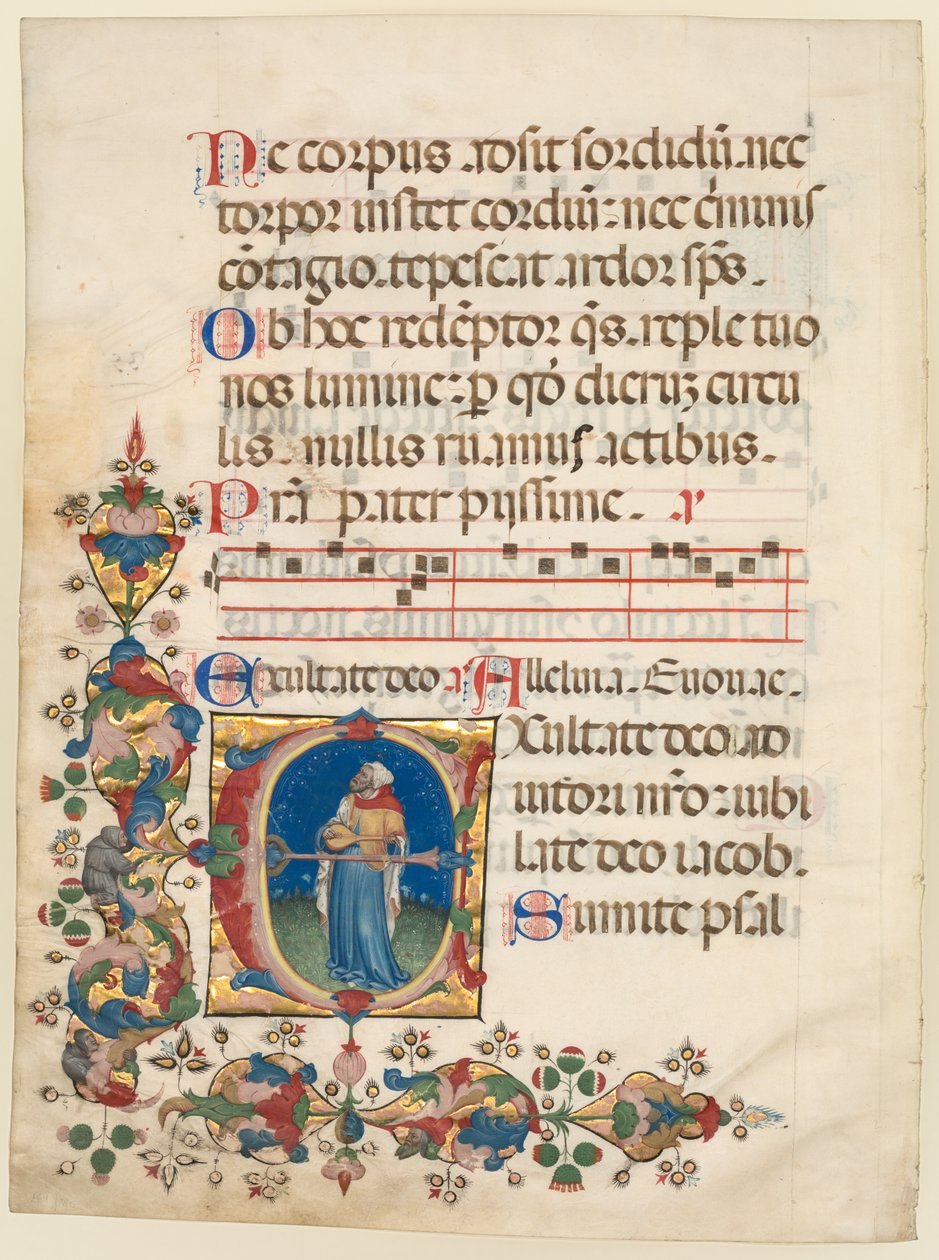 Ne corpus adsit sordidū. nec
torpor instet cordiū: nec c̄minis
cōtagio. tepescat ardor sp̄s.
Ob hoc redēptor q̄s. reple tuo
nos lumine: p̱ qd̄ dieruꝫ circu
lis. nullis ruamus actibus.
Prā pater pijssime. a
Exultate deo a Alleluia. Euouae.
Exultate deo ad
iutori nr̄o: iubi
late deo iacob.
Sumite psal